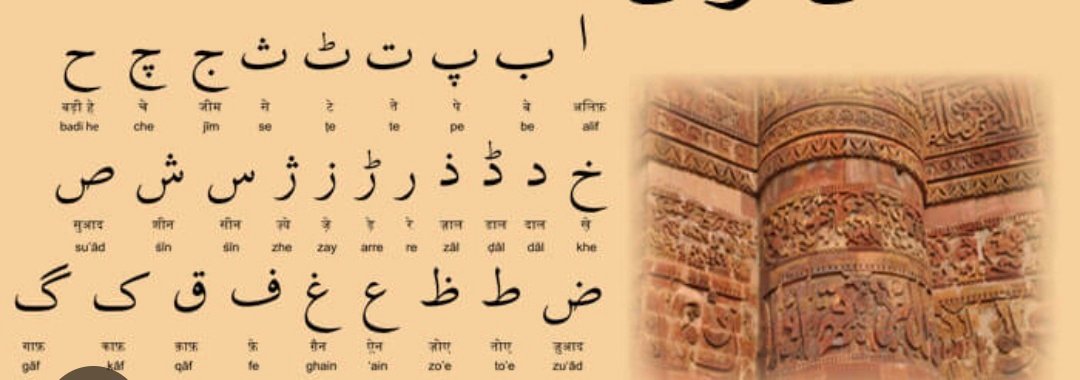 ا ب پ ت ٹ ث ج چ ح
बड़ी हे चे जीम से टे ते पे बे अलिफ़
badi he che jīm se ṭe te pe be alif
خ د ڈ ذ ر ڑ ز ژ س ش ص
सुआद शीन सीन ज़े ड़े रे ज़ाल डाल दाल ख़े
su'ād śīn śīn zhe zay arre re zāl ḍāl dāl khe
ض ط ظ ع غ ف ق ک گ
गाफ़ काफ़ क़ाफ़ फ़े ग़ैन ऐन ज़ोए तोए ज़ुआद
gāf kāf qāf fe ghain 'ain zo'e to'e zu'ād